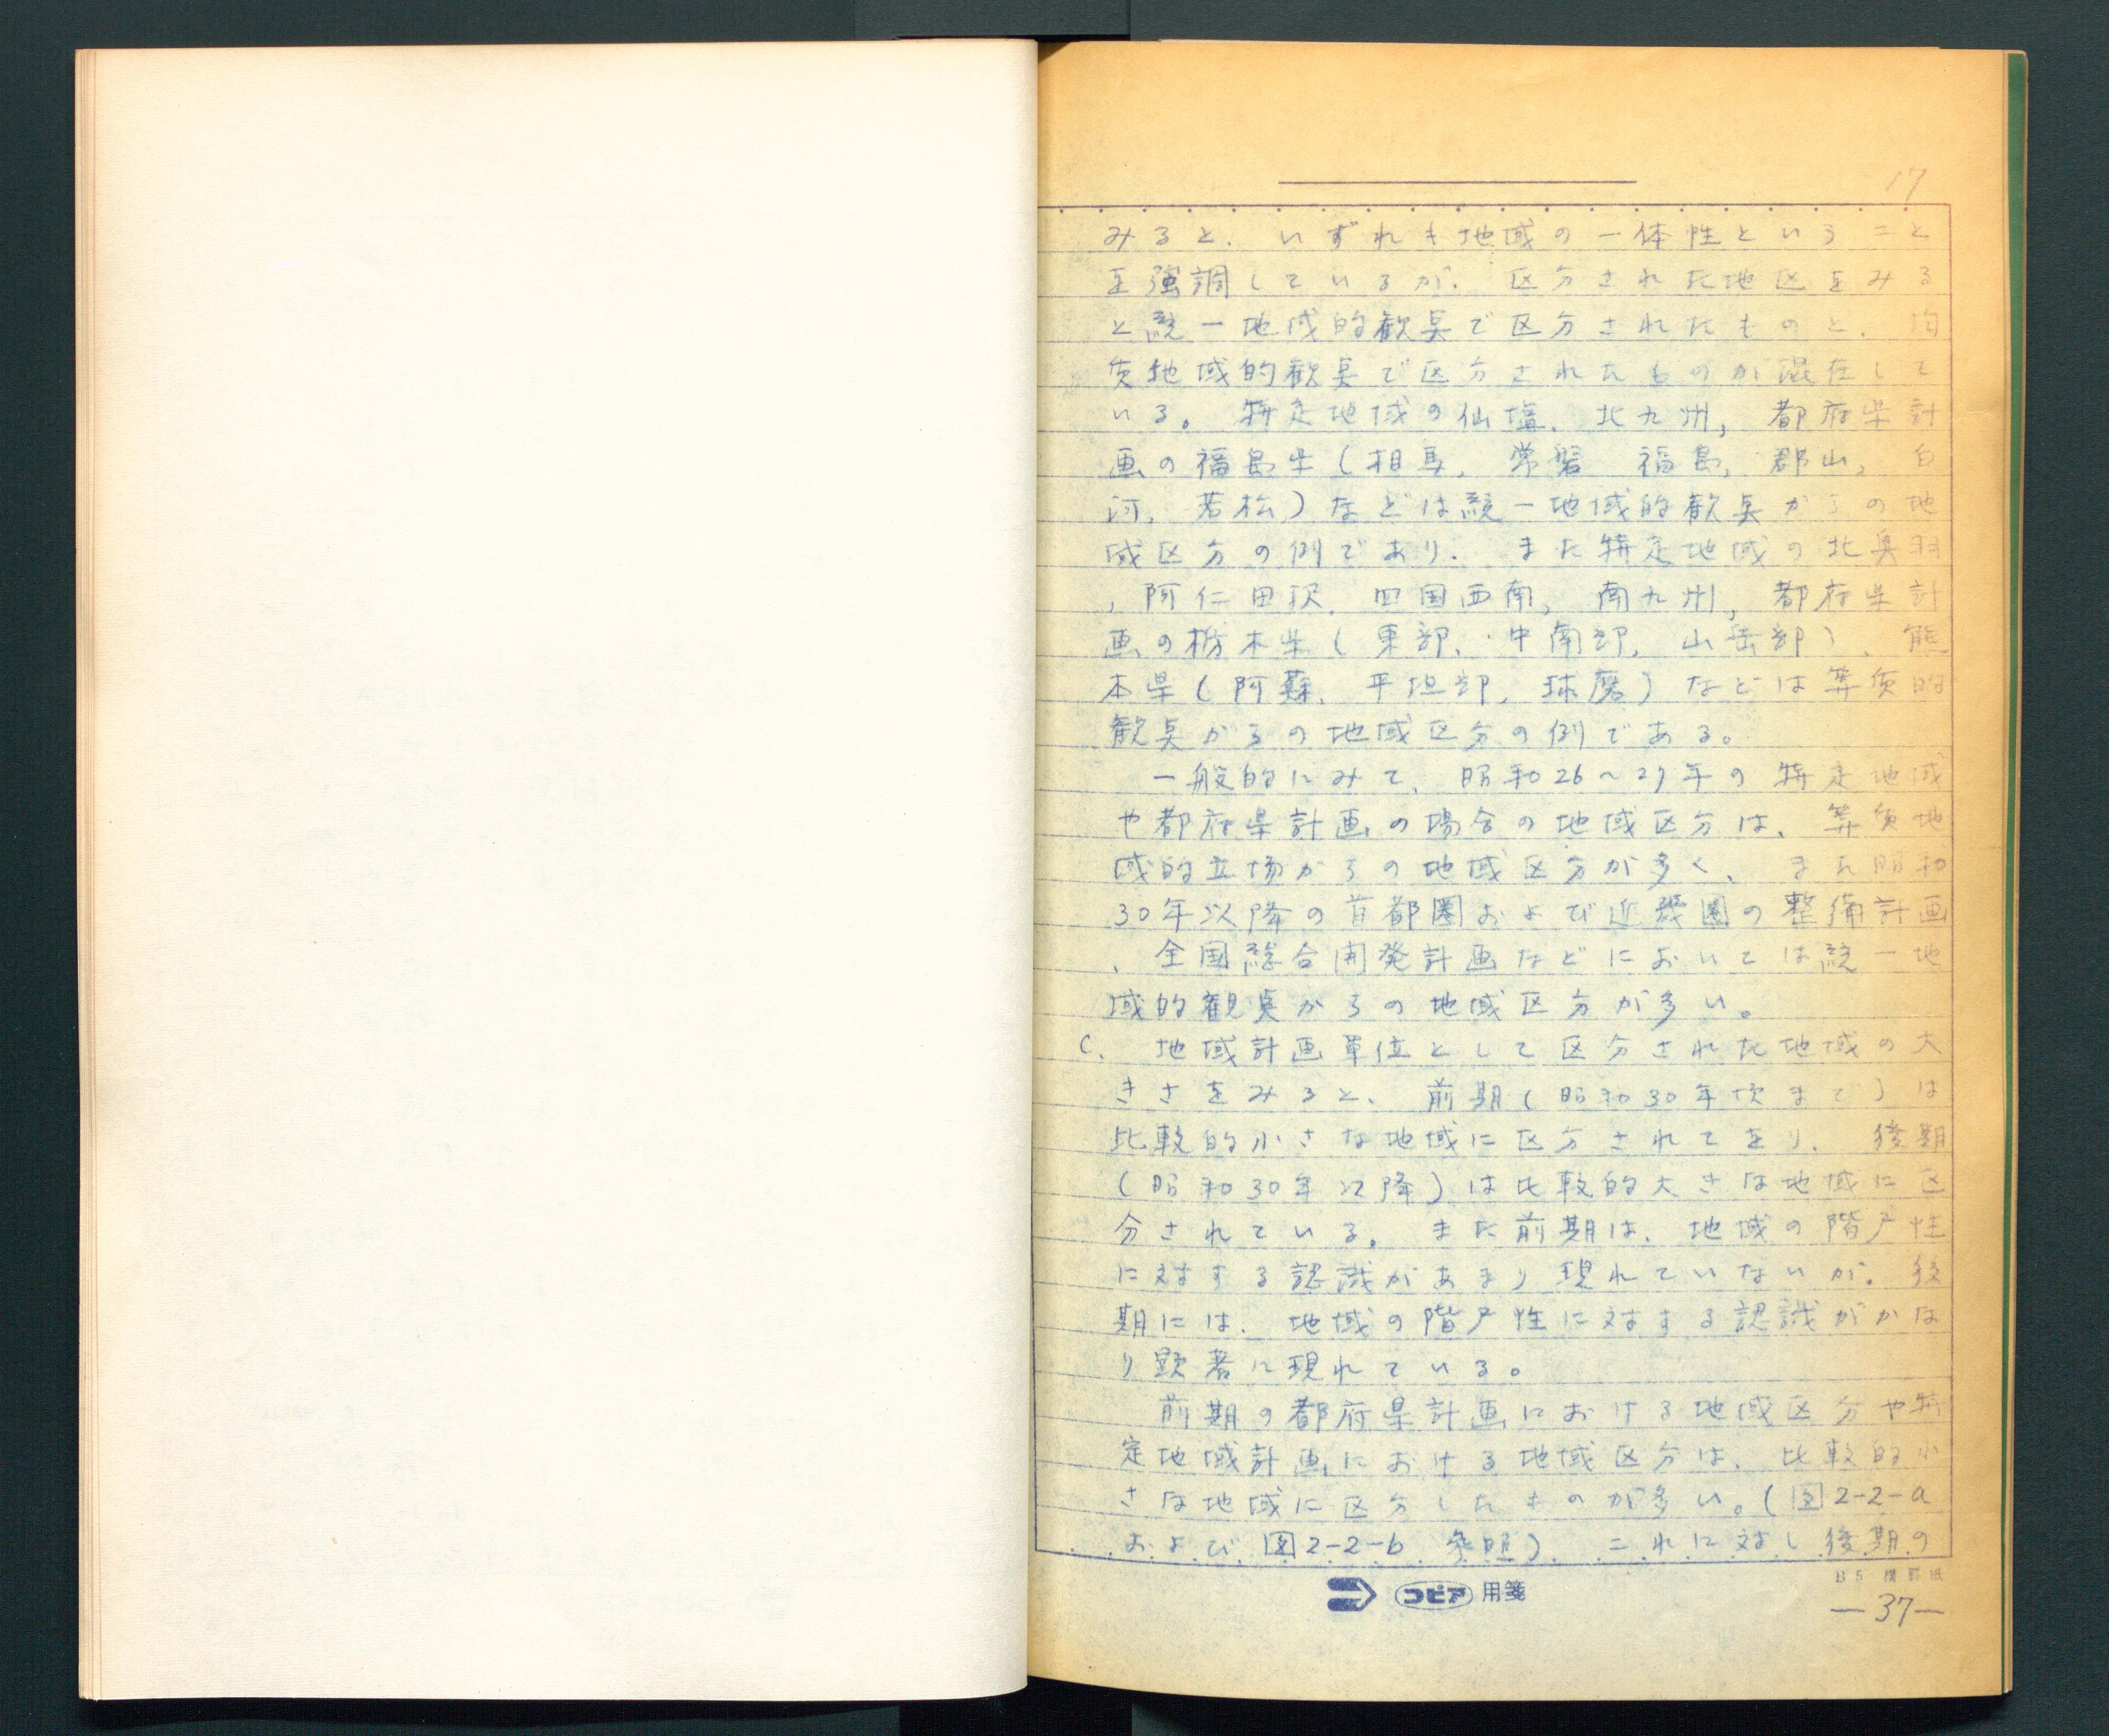 17
みると、いずれも地域の一体性ということ
を強調しているが、区分された地区をみる
と統一地域的歓点で区分されたものと、均
質地域的歓点で区分されたものが混在して
いる。特定地域の仙塩、北九州,都府県計
画の福島県(相馬,常磐 福島,郡山,白
河,若松)などは統一地域的歓点からの地
域区分の例であり、また特定地域の北奥羽
,阿仁田沢,四国西南,南九州,都府県計
画の栃木県(東部、中南部,山岳部)、熊
本県(阿蘇、平坦部,球磨)などは等質的
歓点からの地域区分の例である。
一般的にみて、昭和26~27年の特定地域
や都府県計画の場合の地域区分は、等質地
域的立場からの地域区分が多く、また昭和
30年以降の首都圏および近畿圏の整備計画
、全国総合開発計画などにおいては統一地
域的観点からの地域区分が多い。
C. 地域計画単位として区分された地域の大
きさをみると、前期(昭和30年頃まで)は
比較的小さな地域に区分されてをり、後期
(昭和30年以降)は比較的大きな地域に区
分されている。また前期は、地域の階戸性
に対する認識があまり現れていないが。後
期には、地域の階戸性に対する認識がかな
り顕著に現れている。
前期の都府県計画における地域区分や特
定地域計画における地域区分は、比較的小
さな地域に区分したものが多い。(図2-2-a
および図2-2-b 参照)、これに対し後期の
B5 横罫紙
コピア用箋
—37—